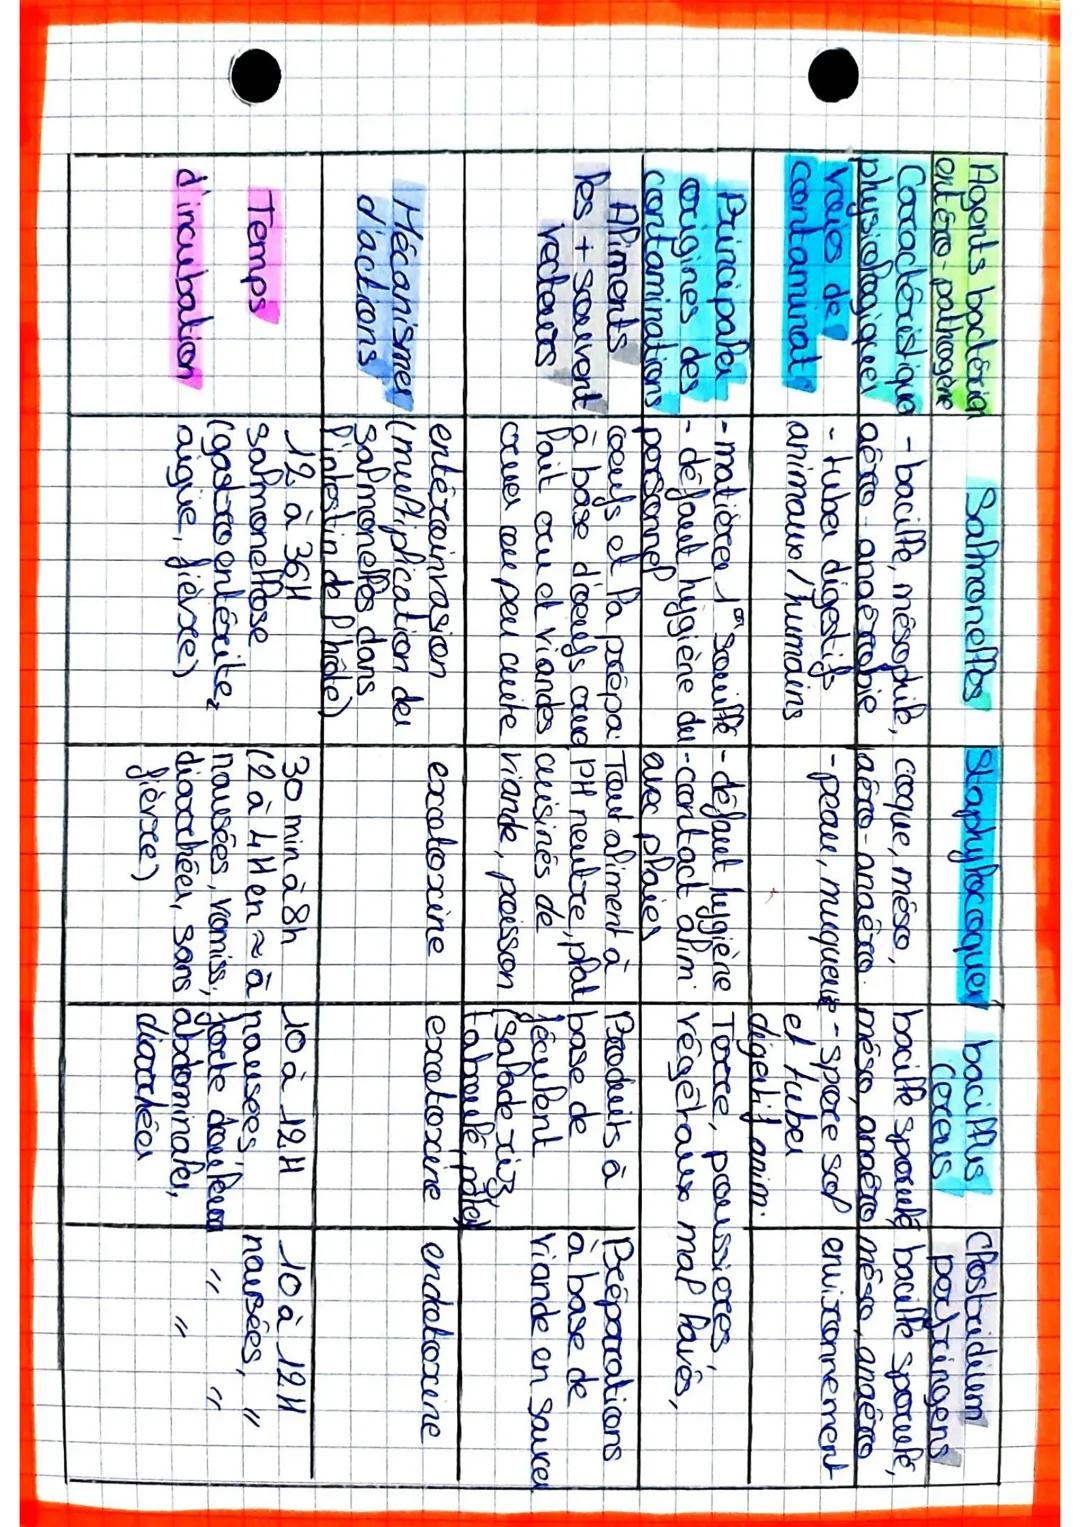 Agents bactérien
entéro-pathogène
Salmonelles
Staphylocoques
bacillus
cereus
Clostridium
perfringens
Caractéristiques
physiologiques
- bacille, mésophile,
aéro-anaérobie
coque, méso,
aéro-anaéro.
bacille sporulé
méso, anaéro
bacille sporulé,
méso, anaéro
Voies de
contaminat°
- tubes digestifs
animaux / humains
- peau, muqueuse
et tubes
digestif anim.
- spore sol
environnement
Principales
origines des
contaminations
- matières 1ère souillé
- défaut hygiène du
personnel
- défaut hygiène
- contact alim
avec plaies
Terre, poussières,
végétaux mal lavés,
Aliments
les + souvent
vecteurs
oeufs et la prépa.
à base d'oeufs crus
lait cru et viandes
crues ou peu cuite
Tout aliment à
PH neutre, plat
cuisinés de
viande, poisson
Produits à
base de
féculent
(salade riz,
taboulé, pâtes)
Préparations
à base de
viande en sauces
Mécanismes
d'actions
entéroinvasion
(multiplication des
salmonelles dans
l'intestin de l'hôte)
exotoxine
exotoxine
endotoxine
Temps
d'incubation
12 à 36H
salmonellose
(gastroentérite,
aiguë, fièvre)
30 min à 8h
(2 à 4H en ≈ à
nausées, vomiss,
diarrhées, sans
fièvre)
10 à 12H
nausées,
forte douleurs
abdominales,
diarrhées
10 à 12H
nausées, "
" "
"